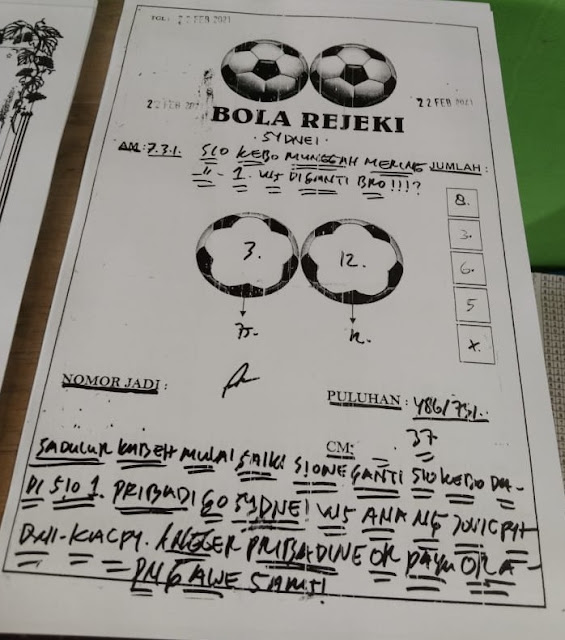 TGL: 22 FEB 2021
22 FEB 2021
22 FEB 2021
BOLA REJEKI
SYDNEI.
AM: 7.3.1. SIO KEBO MUNGGAH MERING JUMLAH :
- 1. WS DIGANTI BRO!!!?
8.
3.
6.
5
X.
3. 12.
NOMOR JADI :
PULUHAN : 486/731.
CM: 37
SADULUR KABEH MULAI SAIKI SIONE GANTI SIO KEBO DA-
DI SIO 1. PRIBADI GO SYDNEI WS ANA NG
ANGGER PRIBADINE OK PAYU ORA